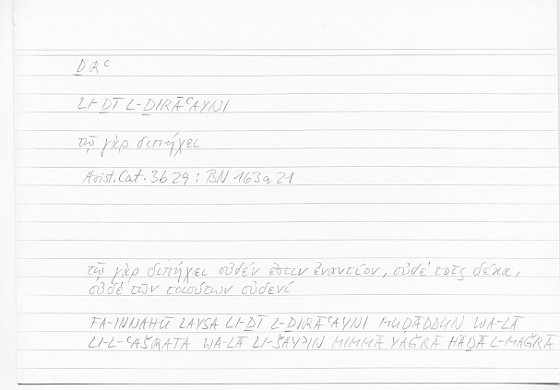 ḎRʿ
LI-ḎĪ L-ḎIRĀʿAYNI
τῷ γὰρ διπήχει
Arist. Cat. 3b29; BN 163a21
τῷ γὰρ διπήχει οὐδέν ἐστιν ἐναντίον, οὐδὲ τοῖς δέκα,
οὐδὲ τῶν τοιούτων οὐδενί
FA-INNAHŪ LAYSA LI-ḎĪ L-ḎIRĀʿAYNI MUḌĀDDUN WA-LĀ
LI-L-ʿAŠRATA WA-LĀ LI-ŠAYʾIN MIMMĀ YAǦRĀ HĀḎĀ L-MAǦRĀ